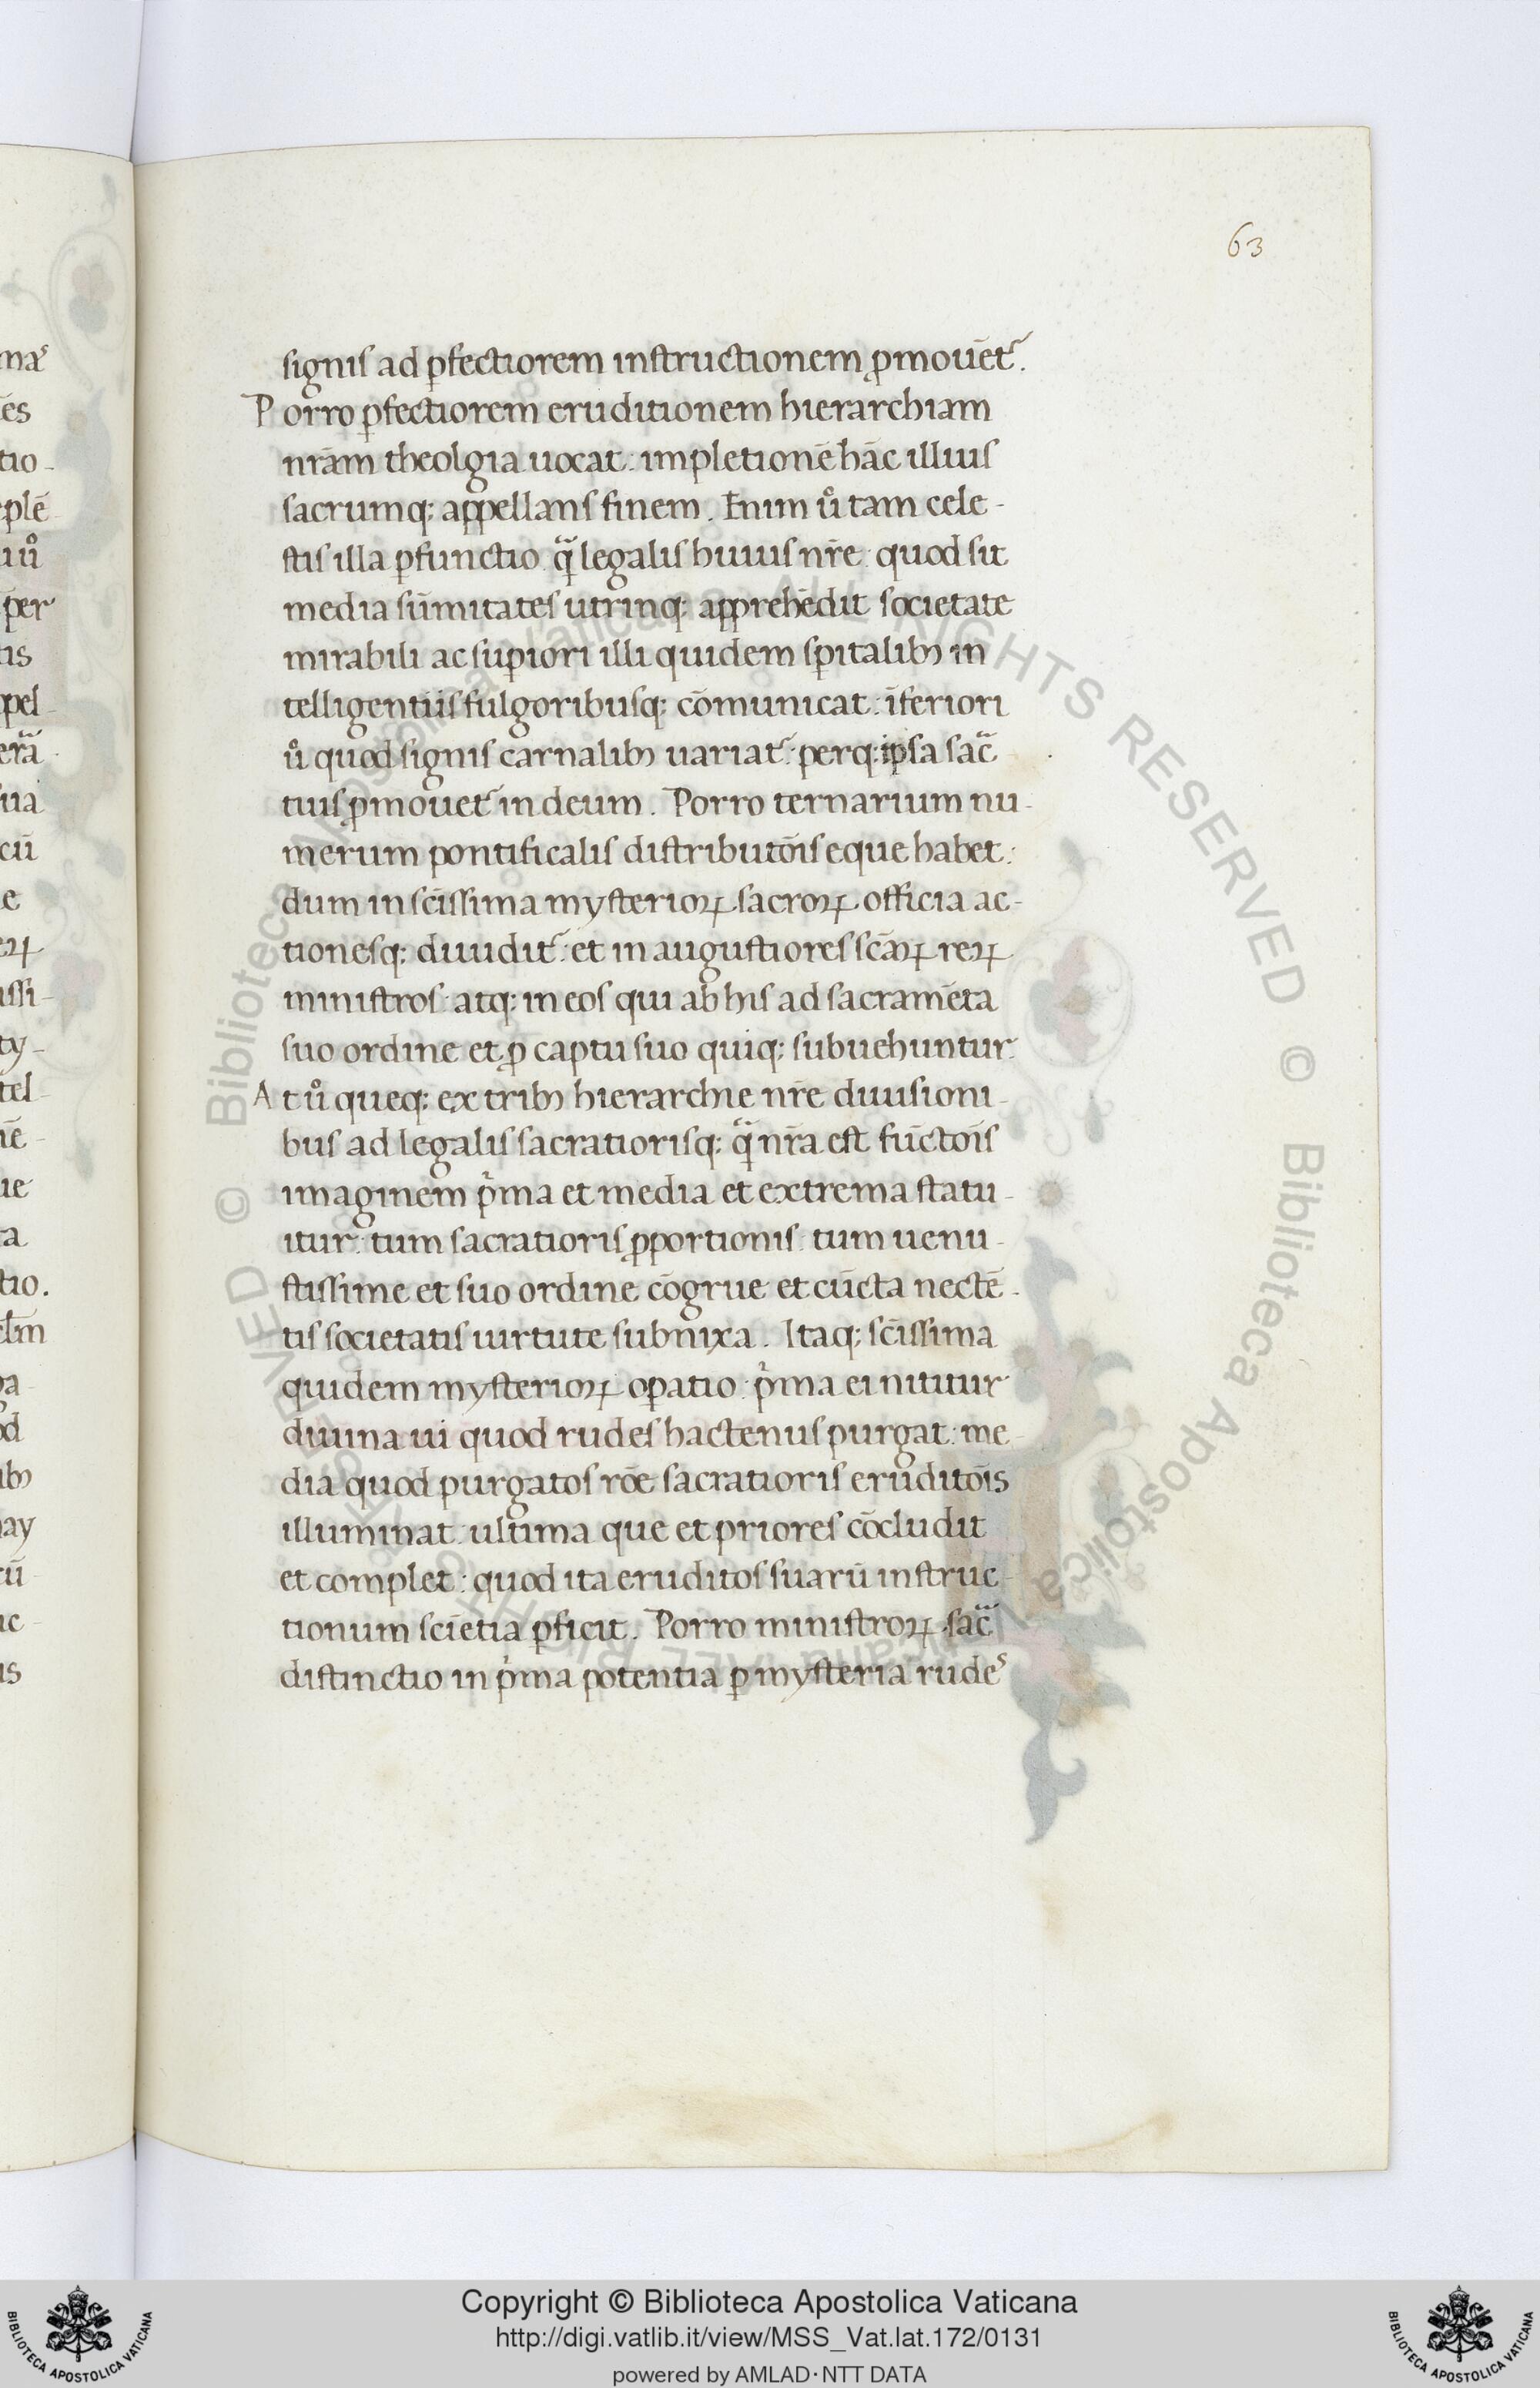 63
signis ad ꝑfectiorem instructionem ꝓmouēt᷑.
Porro ꝑfectiorem eruditionem hierarchiam
nr̄am theolgia uocat: impletionē hāc illius
sacrumq; appellans finem. Enim uͦ tam cele-
stis illa ꝑfunctio qᷓ legalis huius nr̄e: quod sit
media sūmitates utrinq; apprehēdit societate
mirabili ac suꝑiori illi quidem sꝑitalibꝫ in
telligentiis fulgoribusq; cōmunicat: īferiori
uͦ quod signis carnalibꝫ uariat᷑: perq; ipsa sac̄
tius ꝓmouet᷑ in deum. Porro ternarium nu-
merum pontificalis distributōis eque habet:
dum in scīssima mysterioꝝ sacroꝝ officia ac-
tionesq; diuidit᷑: et in augustiores scāꝝ reꝝ
ministros: atq; in eos qui ab his ad sacramēta
suo ordine et ꝓ captu suo quiq; subuehuntur:
At uͦ queq; ex tribꝫ hierarchie nr̄e diuisioni-
bus ad legalis sacratiorisq; qᷓ nr̄a est fūctoīs
imaginem pͥma et media et extrema statu-
itur: tum sacratioris ꝓportionis: tum uenu-
stissime et suo ordine cōgrue et cūcta nectē-
tis societatis uirtute subnixa. Itaq; scīssima
quidem mysterioꝝ oꝑatio: pͥma ei nititur
diuina ui quod rudes hactenus purgat: me-
dia quod purgatos rōe sacratioris eruditōis
illuminat: ultima que et priores cōcludit
et complet: quod ita eruditos suarū instruc-
tionum sciētia ꝑficit. Porro ministroꝝ sac̄
distinctio in pͥma potentia ꝑ mysteria rudes
maˢ
ēs
tio-
plē
uͦ
per
tis
pel-
ua
cū
e
eꝝ
issi-
ty-
tel-
iē-
ue
ra
tio.
ga
od
ibꝫ
ay
cū
ic-
is
© Biblioteca Apostolica Vaticana ALL RIGHTS RESERVED © Biblioteca Apostolica Vaticana ALL RIGHTS RESERVED
Copyright © Biblioteca Apostolica Vaticana
http://digi.vatlib.it/view/MSS_Vat.lat.172/0131
powered by AMLAD·NTT DATA
BIBLIOTECA APOSTOLICA VATICANA
BIBLIOTECA APOSTOLICA VATICANA